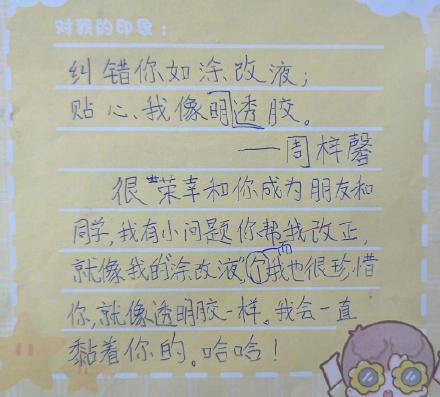 对我的印象:
纠错你如涂改液;
贴心、我像明透胶。
——周梓馨
很荣幸和你成为朋友和
同学,我有小问题你帮我改正,
就像我的"涂改液",而我也很珍惜
你,就像透明胶一样。我会一直
黏着你的。哈哈!